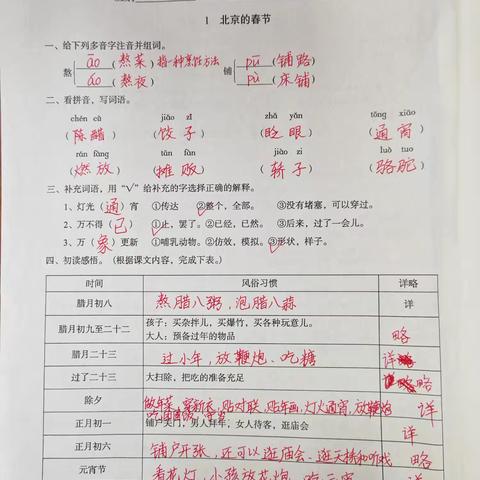 1 北京的春节
一、给下列多音字注音并组词。
熬 āo (熬菜) 指一种烹饪方法 铺 pū (铺路)
áo (熬夜) pù (床铺)
二、看拼音，写词语。
chén cù jiǎo zǐ zhǎ yǎn tōng xiāo
(陈醋) (饺子) (眨眼) (通宵)
rán fàng tān fàn jiào luò tuo
(燃放) (摊贩) (轿子) (骆驼)
三、补充词语，用“√”给补充的字选择正确的解释。
1、灯光(通)宵 ①传达 ②整个，全部。 ③没有堵塞，可以穿过。
2、万不得(已) ①止，罢了。 ②已经，已然。 ③后来，过了一会儿。
3、万(象)更新 ①哺乳动物。 ②仿效，模拟。 ③形状，样子。
四、初读感悟。(根据课文内容，完成下表。)
时间 风俗习惯 详略
腊月初八 熬腊八粥，泡腊八蒜 详
腊月初九至二十二 孩子：买杂拌儿，买爆竹，买各种玩意儿。
大人：预备过年的物品 略
腊月二十三 过小年，放鞭炮、吃糖 详
过了二十三 大扫除，把吃的准备充足 略
除夕 做年菜，穿新衣，贴对联，贴年画，灯火通宵，放鞭炮 详
正月初一 铺户关门，男人拜年，女人待客，逛庙会 详
正月初六 铺户开张，还可以逛庙会、逛天桥和听戏 略
元宵节 看花灯，小孩放花炮，吃元宵 详